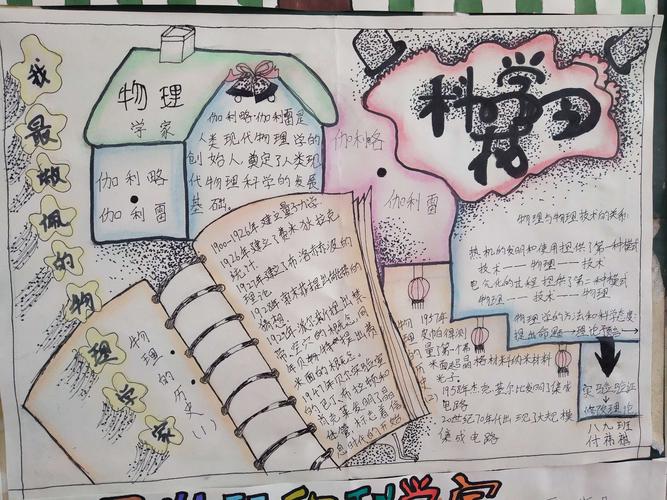 我最敬佩的物理学家
物理
学家
伽利略
伽利雷
伽利略·伽利雷是
人类现代物理学的
创始人,奠定了人类现
代物理科学的发展
基础。
伽利略
伽利雷
科学
探习
物理与物理技术的关系:
热机的发明和使用提供了第一种模式
技术——物理——技术
电气化的过程提供了第二种模式
物理——技术——物理
物理学的方法和科学态度:
提出命题→理论解
实验验证
修改理论
八九班
物理的历史(1)
1900-1926年建立量子力学
1926年建立了费米狄拉克
统计
1927年建立了布洛赫波的
理论
1928年索末菲提出能带的
猜想
1929年派尔斯提出禁
带、空穴的概念,同
年贝特提出费
米面的概念。
1947年贝尔实验室
的巴丁、布拉顿和
肖克莱发明了晶
体管,标志着信
息时代的开始
物理的历史(2)
1957年
皮帕得测
量了第一个费
米面超晶格材料纳米材料
光子。
1958年杰克基尔比发明了集成
电路
20世纪70年代出现了大规模
集成电路